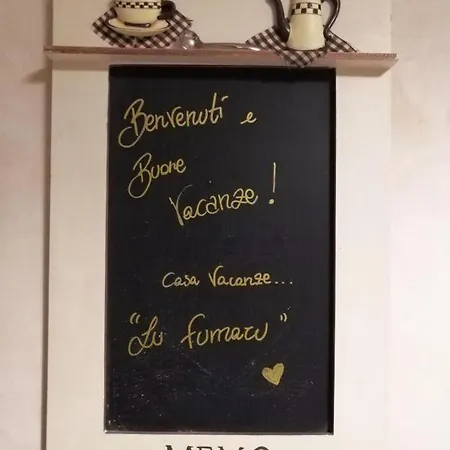 Benvenuti e
Buone
Vacanze!
Casa Vacanze...
"Lu fumaru"
MEMO